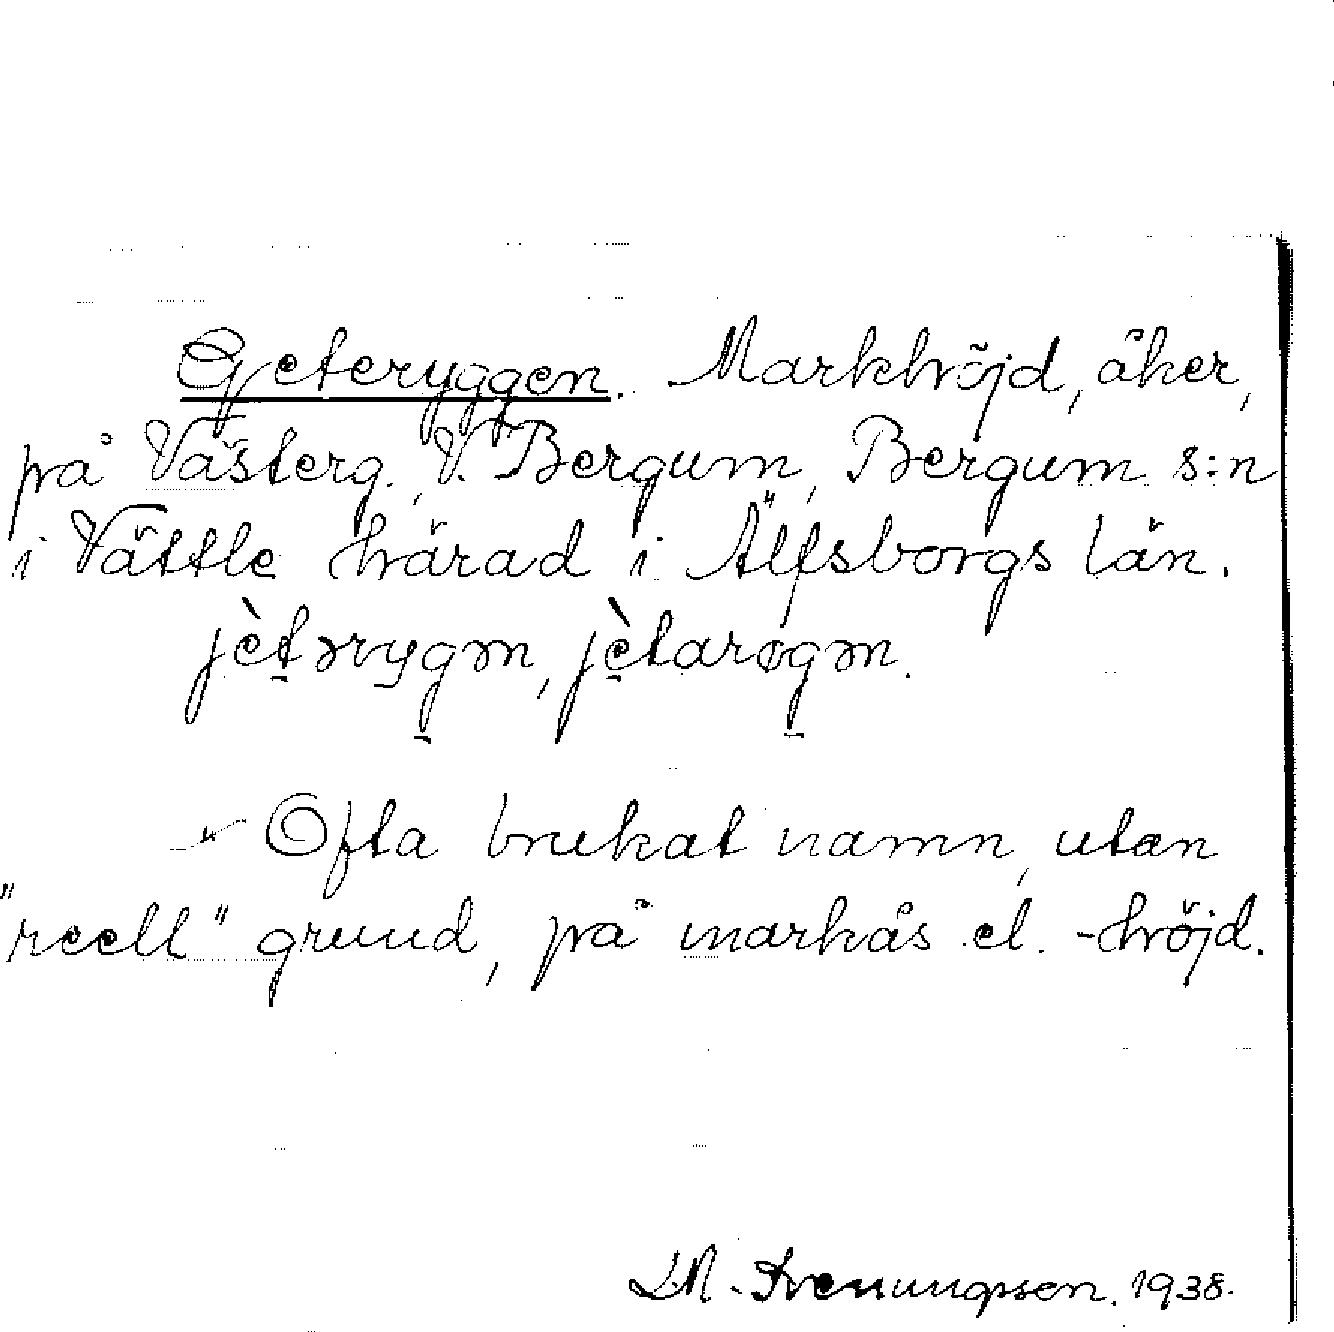 Geteryggen. Markhöjd, åker,
på Västerg., V. Bergum, Bergum s:n
i Vättle härad i Älfsborgs län.
jètərygən, jètarøgən.
Ofta brukat namn, utan
"reell" grund, på markås el. -höjd.
Svenungsson. 1938.